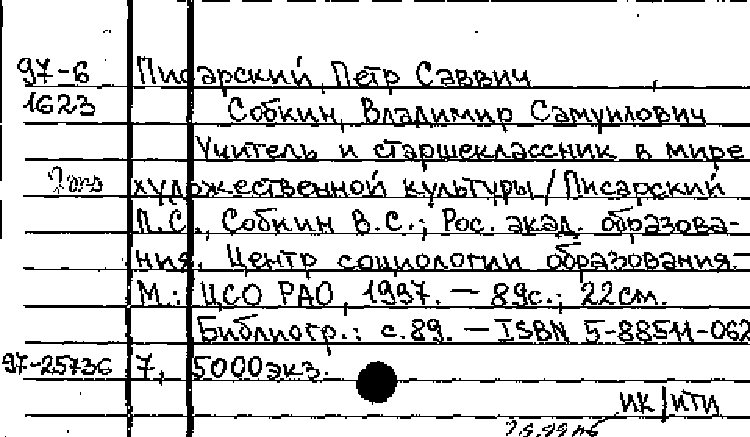 97-6 Писарский, Петр Саввич
1623 Собкин, Владимир Самуилович
Учитель и старшеклассник в мире
художественной культуры / Писарский
П.С., Собкин В.С.; Рос. акад. образова-
ния. Центр социологии образования.-
М.: ЦСО РАО, 1997. — 89с.; 22см.
Библиогр.: с.89. — ISBN 5-88511-062
97-25736 7, 5000экз.
ИК/ИТП